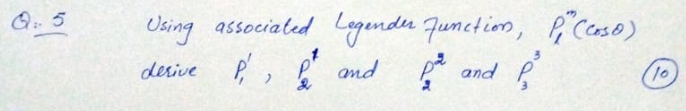 Q. 5 Using associated Legender Function, P₁ᵐ(Cosθ)
derive P₁¹, P₂¹ and P₂² and P₃³ (10)